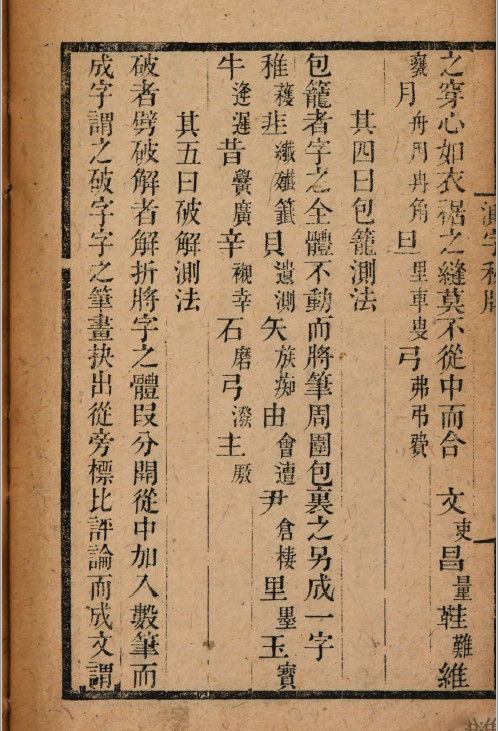 測字秘牒
之穿心如衣裾之縫莫不從中而合 文吏昌量鞋難維
襲月舟用冉角旦里車曳弓弗弔費
其四曰包籠測法
包籠者字之全體不動而將筆周圍包裏之另成一字
稚䅳韭纖孅籤貝遺測矢族痴由會遭尹倉棲里墨玉寶
牛逢遲昔黌廣辛襯幸石磨弓潑主厰
其五曰破解測法
破者劈破解者解折將字之體段分開從中加入數筆而
成字謂之破字字之筆畫抉出從旁標比評論而成文謂